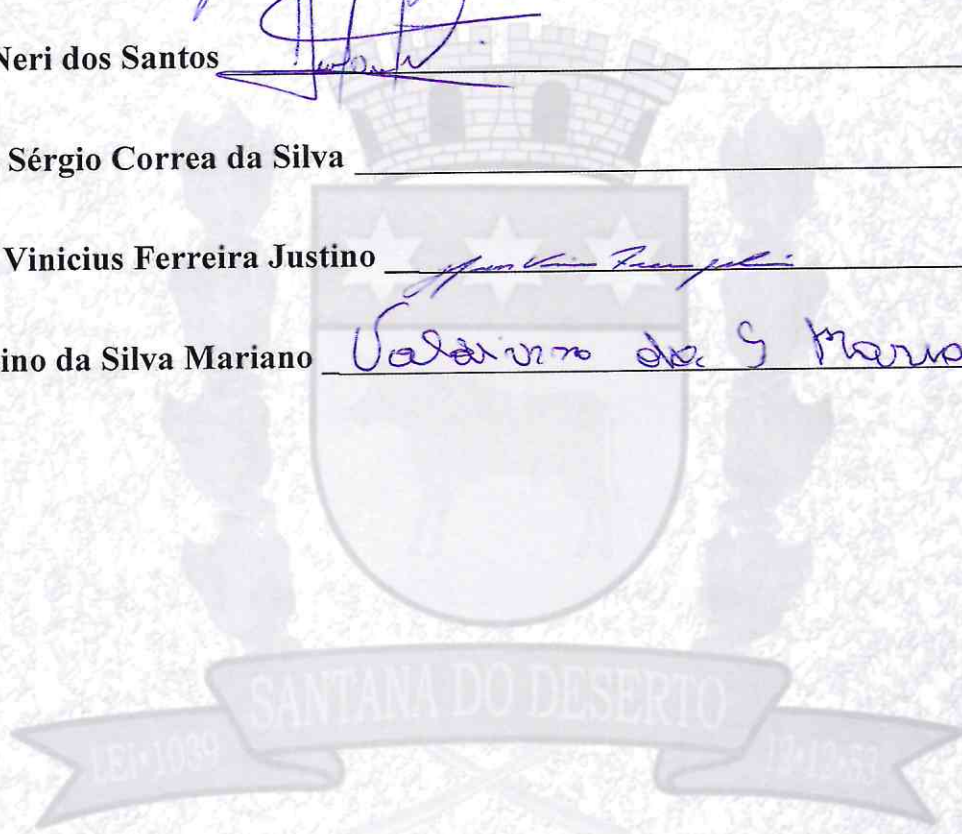 Neri dos Santos
Sérgio Correa da Silva
Vinicius Ferreira Justino
ino da Silva Mariano Valdivino da S Maria
SANTANA DO DESERTO
LEI•1039 12•12•53